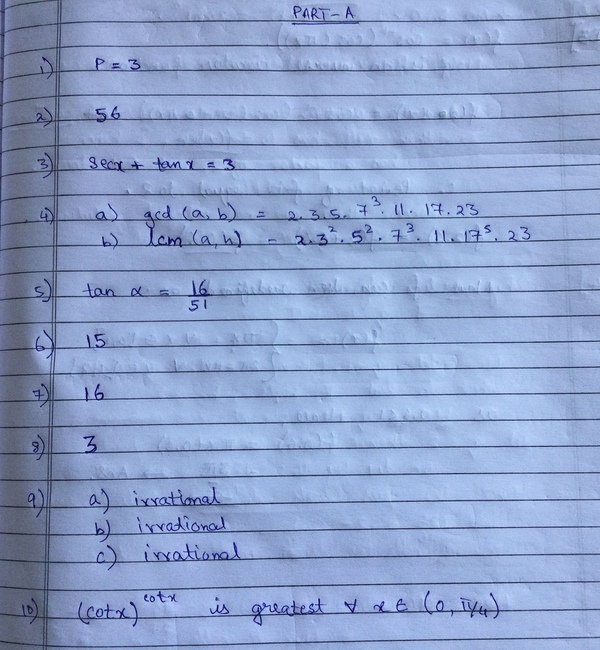 PART-A
1) P = 3
2) 56
3) secx + tanx = 3
4) a) gcd (a, b) = 2.3.5.7³.11.17.23
b) lcm (a, b) = 2.3².5².7³.11.17⁵.23
5) tan α = 16/51
6) 15
7) 16
8) 3
9) a) irrational
b) irrational
c) irrational
10) (cotx)^cotx is greatest ∀ x ∈ (0, π/4)